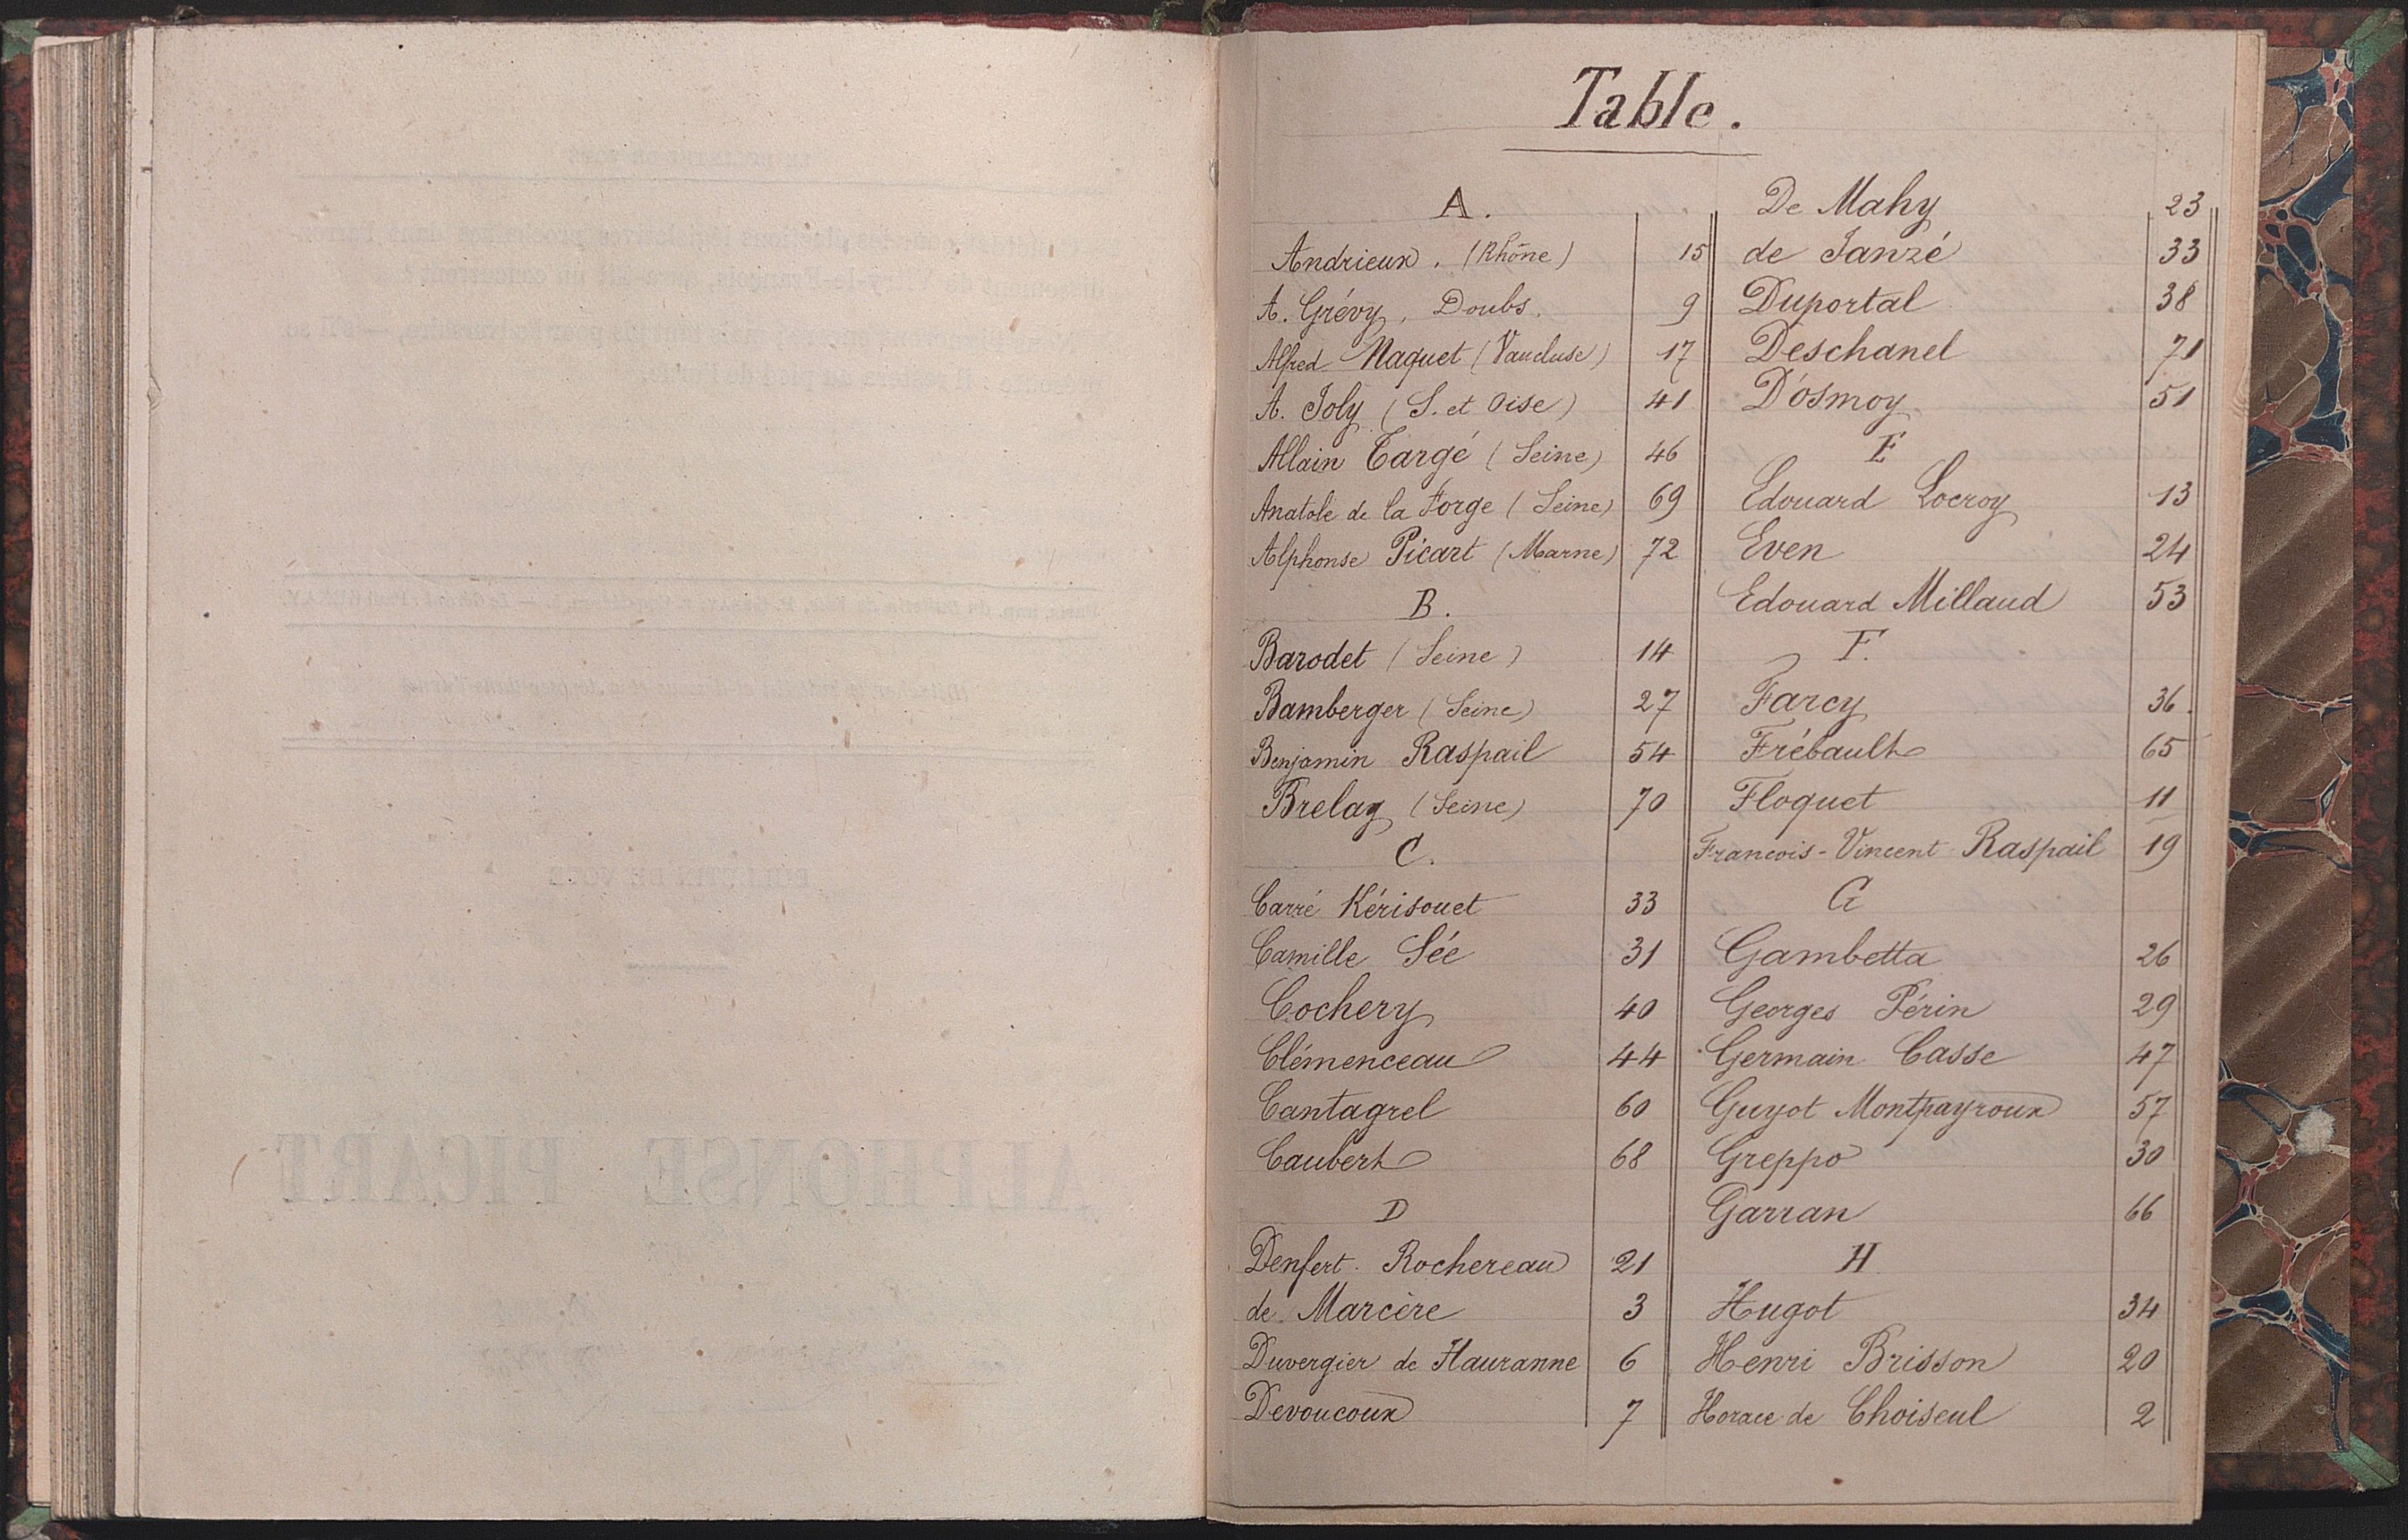 BULLETIN DE VOTE
ALPHONSE PICART
Table.
A.
Andrieux. (Rhône) 15
A. Grévy, Doubs. 9
Alfred Naquet (Vaucluse) 17
A. Joly (S. et Oise) 41
Allain Targé (Seine) 46
Anatole de la Forge (Seine) 69
Alphonse Picart (Marne) 72
B.
Barodet (Seine) 14
Bamberger (Seine) 27
Benjamin Raspail 54
Brelay (Seine) 70
C.
Carré Kérisouet 33
Camille Sée 31
Cochery 40
Clémenceau 44
Cantagrel 60
Caubert 68
D
Denfert. Rochereau 21
de Marcère 3
Duvergier de Hauranne 6
Devoucoux 7
De Mahy 23
de Janzé 33
Duportal 38
Deschanel 71
D'osmoy 51
E
Edouard Locroy 13
Even 24
Edouard Millaud 53
F.
Farcy 36.
Frébault 65
Floquet 11
Francois-Vincent Raspail 19
G
Gambetta 26
Georges Périn 29
Germain Casse 47
Guyot Montpayroux 57
Greppo 30
Garran 66
H
Hugot 34
Henri Brisson 20
Horace de Choiseul 2